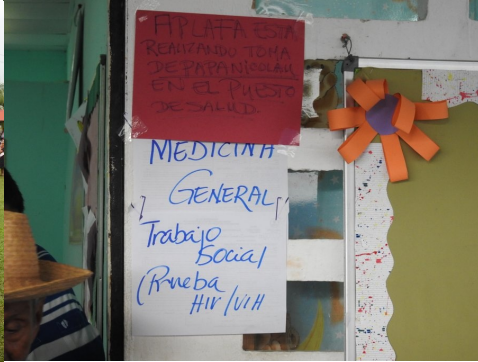 APLAFA ESTA
REALIZANDO TOMA
DE PAPANICOLAU
EN EL PUESTO
DE SALUD.
MEDICINA
GENERAL
Trabajo
Social
(Prueba
HIV/VIH